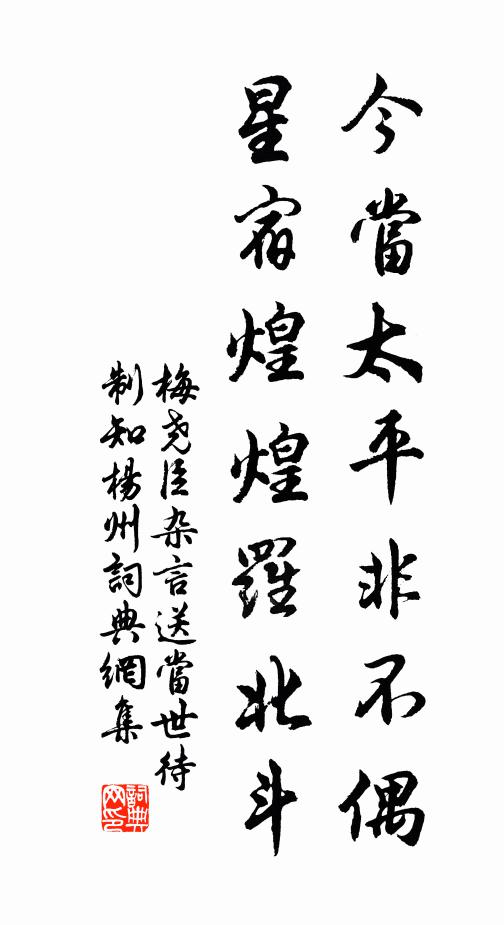 今當太平非不偶
星宿煌煌羅北斗
梅尧臣杂言送當世待
制知楊州詞典網集
詞典网印